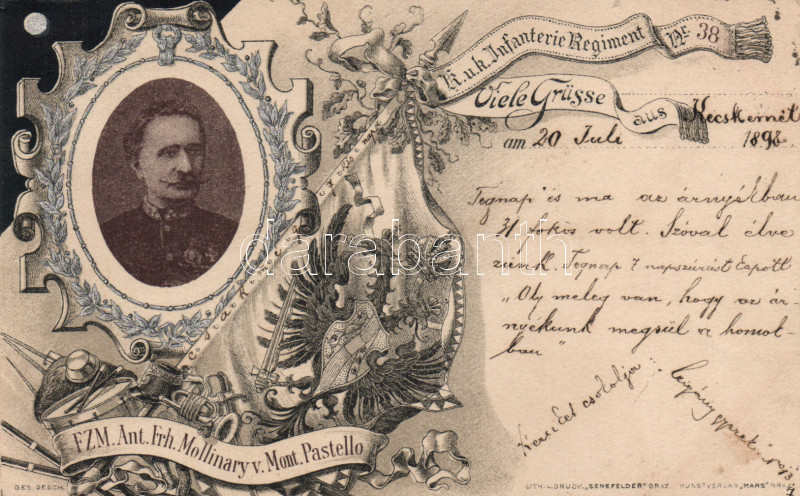 K.u.k. Infanterie Regiment Nr. 38
Viele Grüsse aus Kecskemét
am 20 Juli 1898.
Tegnap és ma az árnyékban
31 fokos volt. Szóval élve
Tegnap 7 napszúrást kapott
"Oly meleg van, hogy az ár-
nyékunk megsül a homok-
ban"
csókolja:
FZM. Ant. Frh. Mollinary v. Mont. Pastello
GES. GESCH.
LITH. u. DRUCK. „SENEFELDER" GRAZ. KUNSTVERLAG „MARS" GRAZ
darabanth